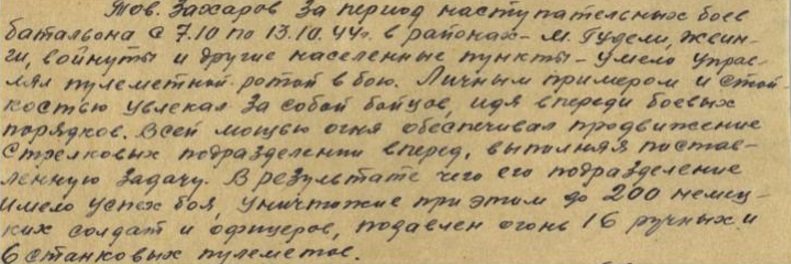 Тов. Захаров за период наступательных боев
батальона с 7.10 по 13.10.44г. в районах - М. Гудели, Жвин-
ги, Войнуты и другие населенные пункты - умело управ-
лял пулеметной ротой в бою. Личным примером и стой-
костью увлекал за собой бойцов, идя впереди боевых
порядков. Всей мощью огня обеспечивал продвижение
стрелковых подразделении вперед, выполняя постав-
ленную задачу. В результате чего его подразделение
имело успех боя, уничтожив при этом до 200 немец-
ких солдат и офицеров, подавлен огонь 16 ручных и
6 станковых пулеметов.